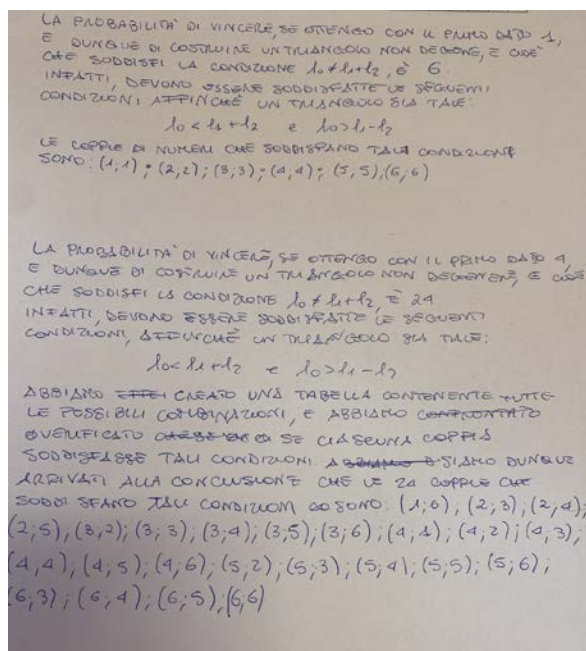 LA PROBABILITA' DI VINCERE, SE OTTENGO CON IL PRIMO DADO 1,
E DUNQUE DI COSTRUIRE UN TRIANGOLO NON DEGENE, E CIOE'
CHE SODDISFI LA CONDIZIONE l0 ≠ l1+l2, È 6.
INFATTI, DEVONO ESSERE SODDISFATTE LE SEGUENTI
CONDIZIONI AFFINCHÈ UN TRIANGOLO SIA TALE:
l0 < l1 + l2 e l0 > l1 - l2
LE COPPIE DI NUMERI CHE SODDISFANO TALI CONDIZIONI
SONO: (1;1); (2;2); (3;3); (4;4); (5;5); (6;6)
LA PROBABILITA' DI VINCERE, SE OTTENGO CON IL PRIMO DADO 4,
E DUNQUE DI COSTRUIRE UN TRIANGOLO NON DEGENERE, E CIOÈ
CHE SODDISFI LA CONDIZIONE l0 ≠ l1+l2, È 24
INFATTI, DEVONO ESSERE SODDISFATTE LE SEGUENTI
CONDIZIONI, AFFINCHÈ UN TRIANGOLO SIA TALE:
l0 < l1 + l2 e l0 > l1 - l2
ABBIAMO CREATO UNA TABELLA CONTENENTE TUTTE
LE POSSIBILI COMBINAZIONI, E ABBIAMO CONFRONTATO
VERIFICATO SE CIASCUNA COPPIA
SODDISFASSE TALI CONDIZIONI. SIAMO DUNQUE
ARRIVATI ALLA CONCLUSIONE CHE LE 24 COPPIE CHE
SODDISFANO TALI CONDIZIONI SONO: (1;6); (2;3); (2;4);
(2;5); (3;2); (3;3); (3;4); (3;5); (3;6); (4;1); (4;2); (4;3),
(4;4); (4;5); (4;6); (5;2); (5;3); (5;4); (5;5); (5;6);
(6;3); (6;4); (6;5); (6;6)